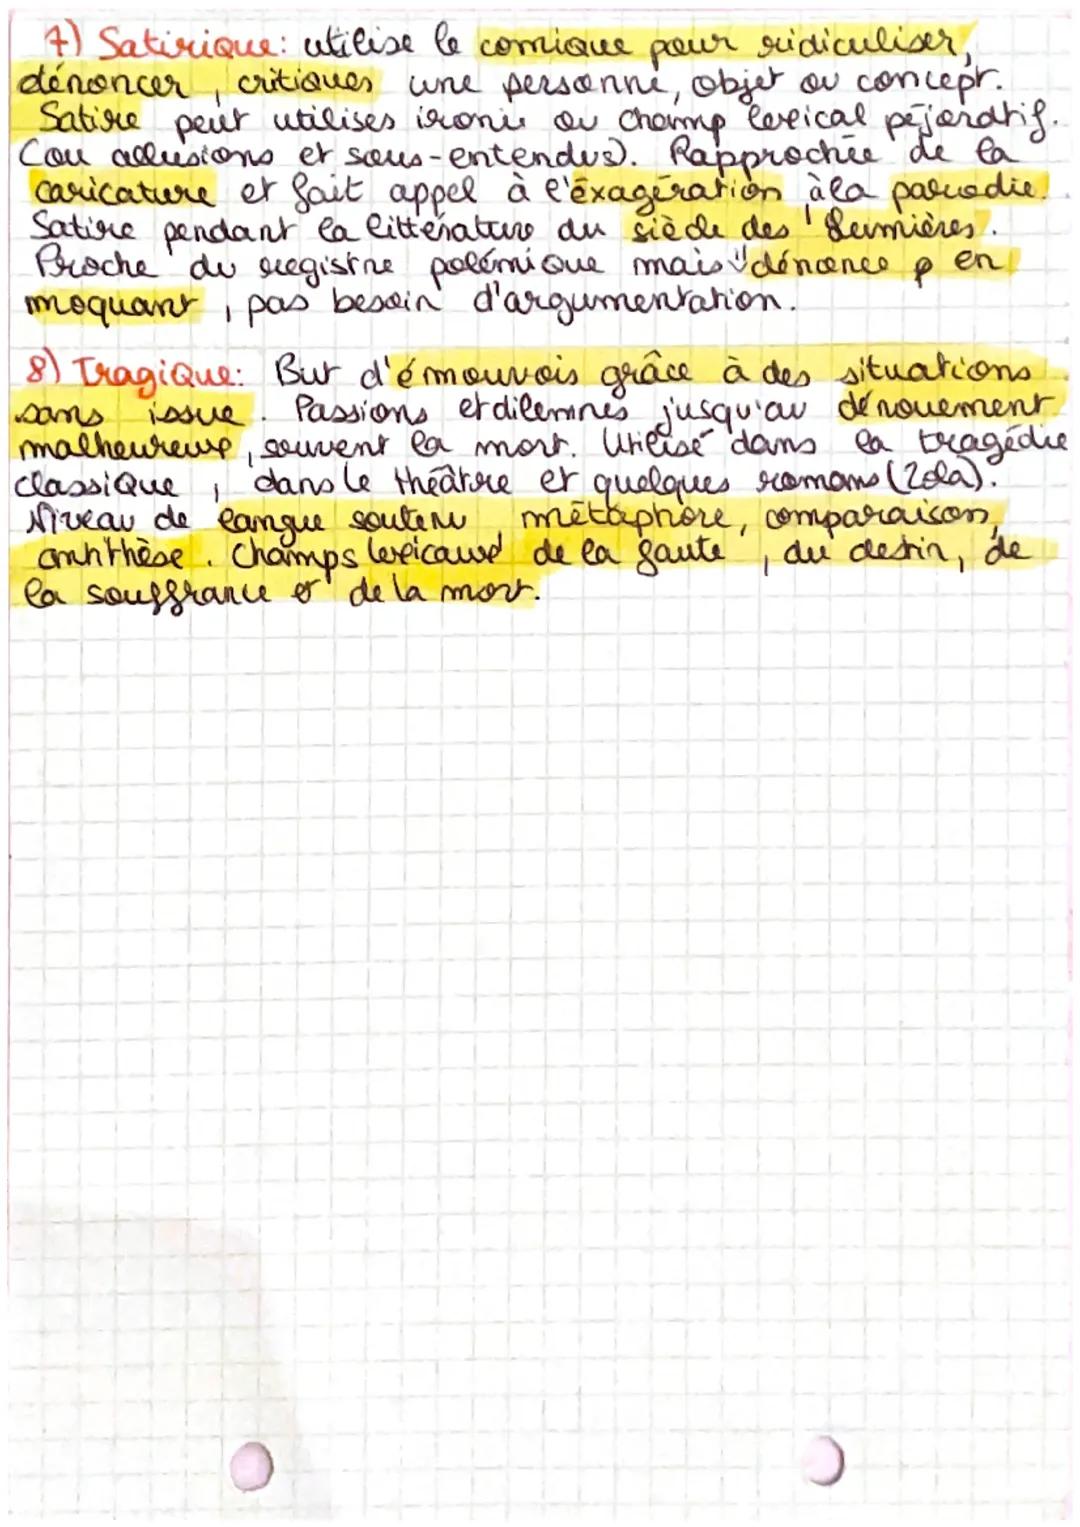 7) Satirique: utilise le comique pour ridiculiser,
dénoncer, critiques une personne, objet ou concept.
Satire peut utilises ironie ou champ lexical péjoratif.
(ou allusions et sous-entendus). Rapprochée de la
caricature et fait appel à l'éxagération, à la parodie.
Satire pendant la littérature du siècle des lumières.
Proche du registre polémique mais dénonce en
moquant, pas besoin d'argumentation.
8) Tragique: But d'émouvoir grâce à des situations
sans issue. Passions et dilemmes jusqu'au dénouement
malheureux, souvent la mort. Utilisé dans la tragédie
classique, dans le théâtre et quelques romans (Zola).
Niveau de langue soutenu, métaphore, comparaison,
antithèse. Champs lexicaux de la faute, du destin, de
la souffrance et de la mort.